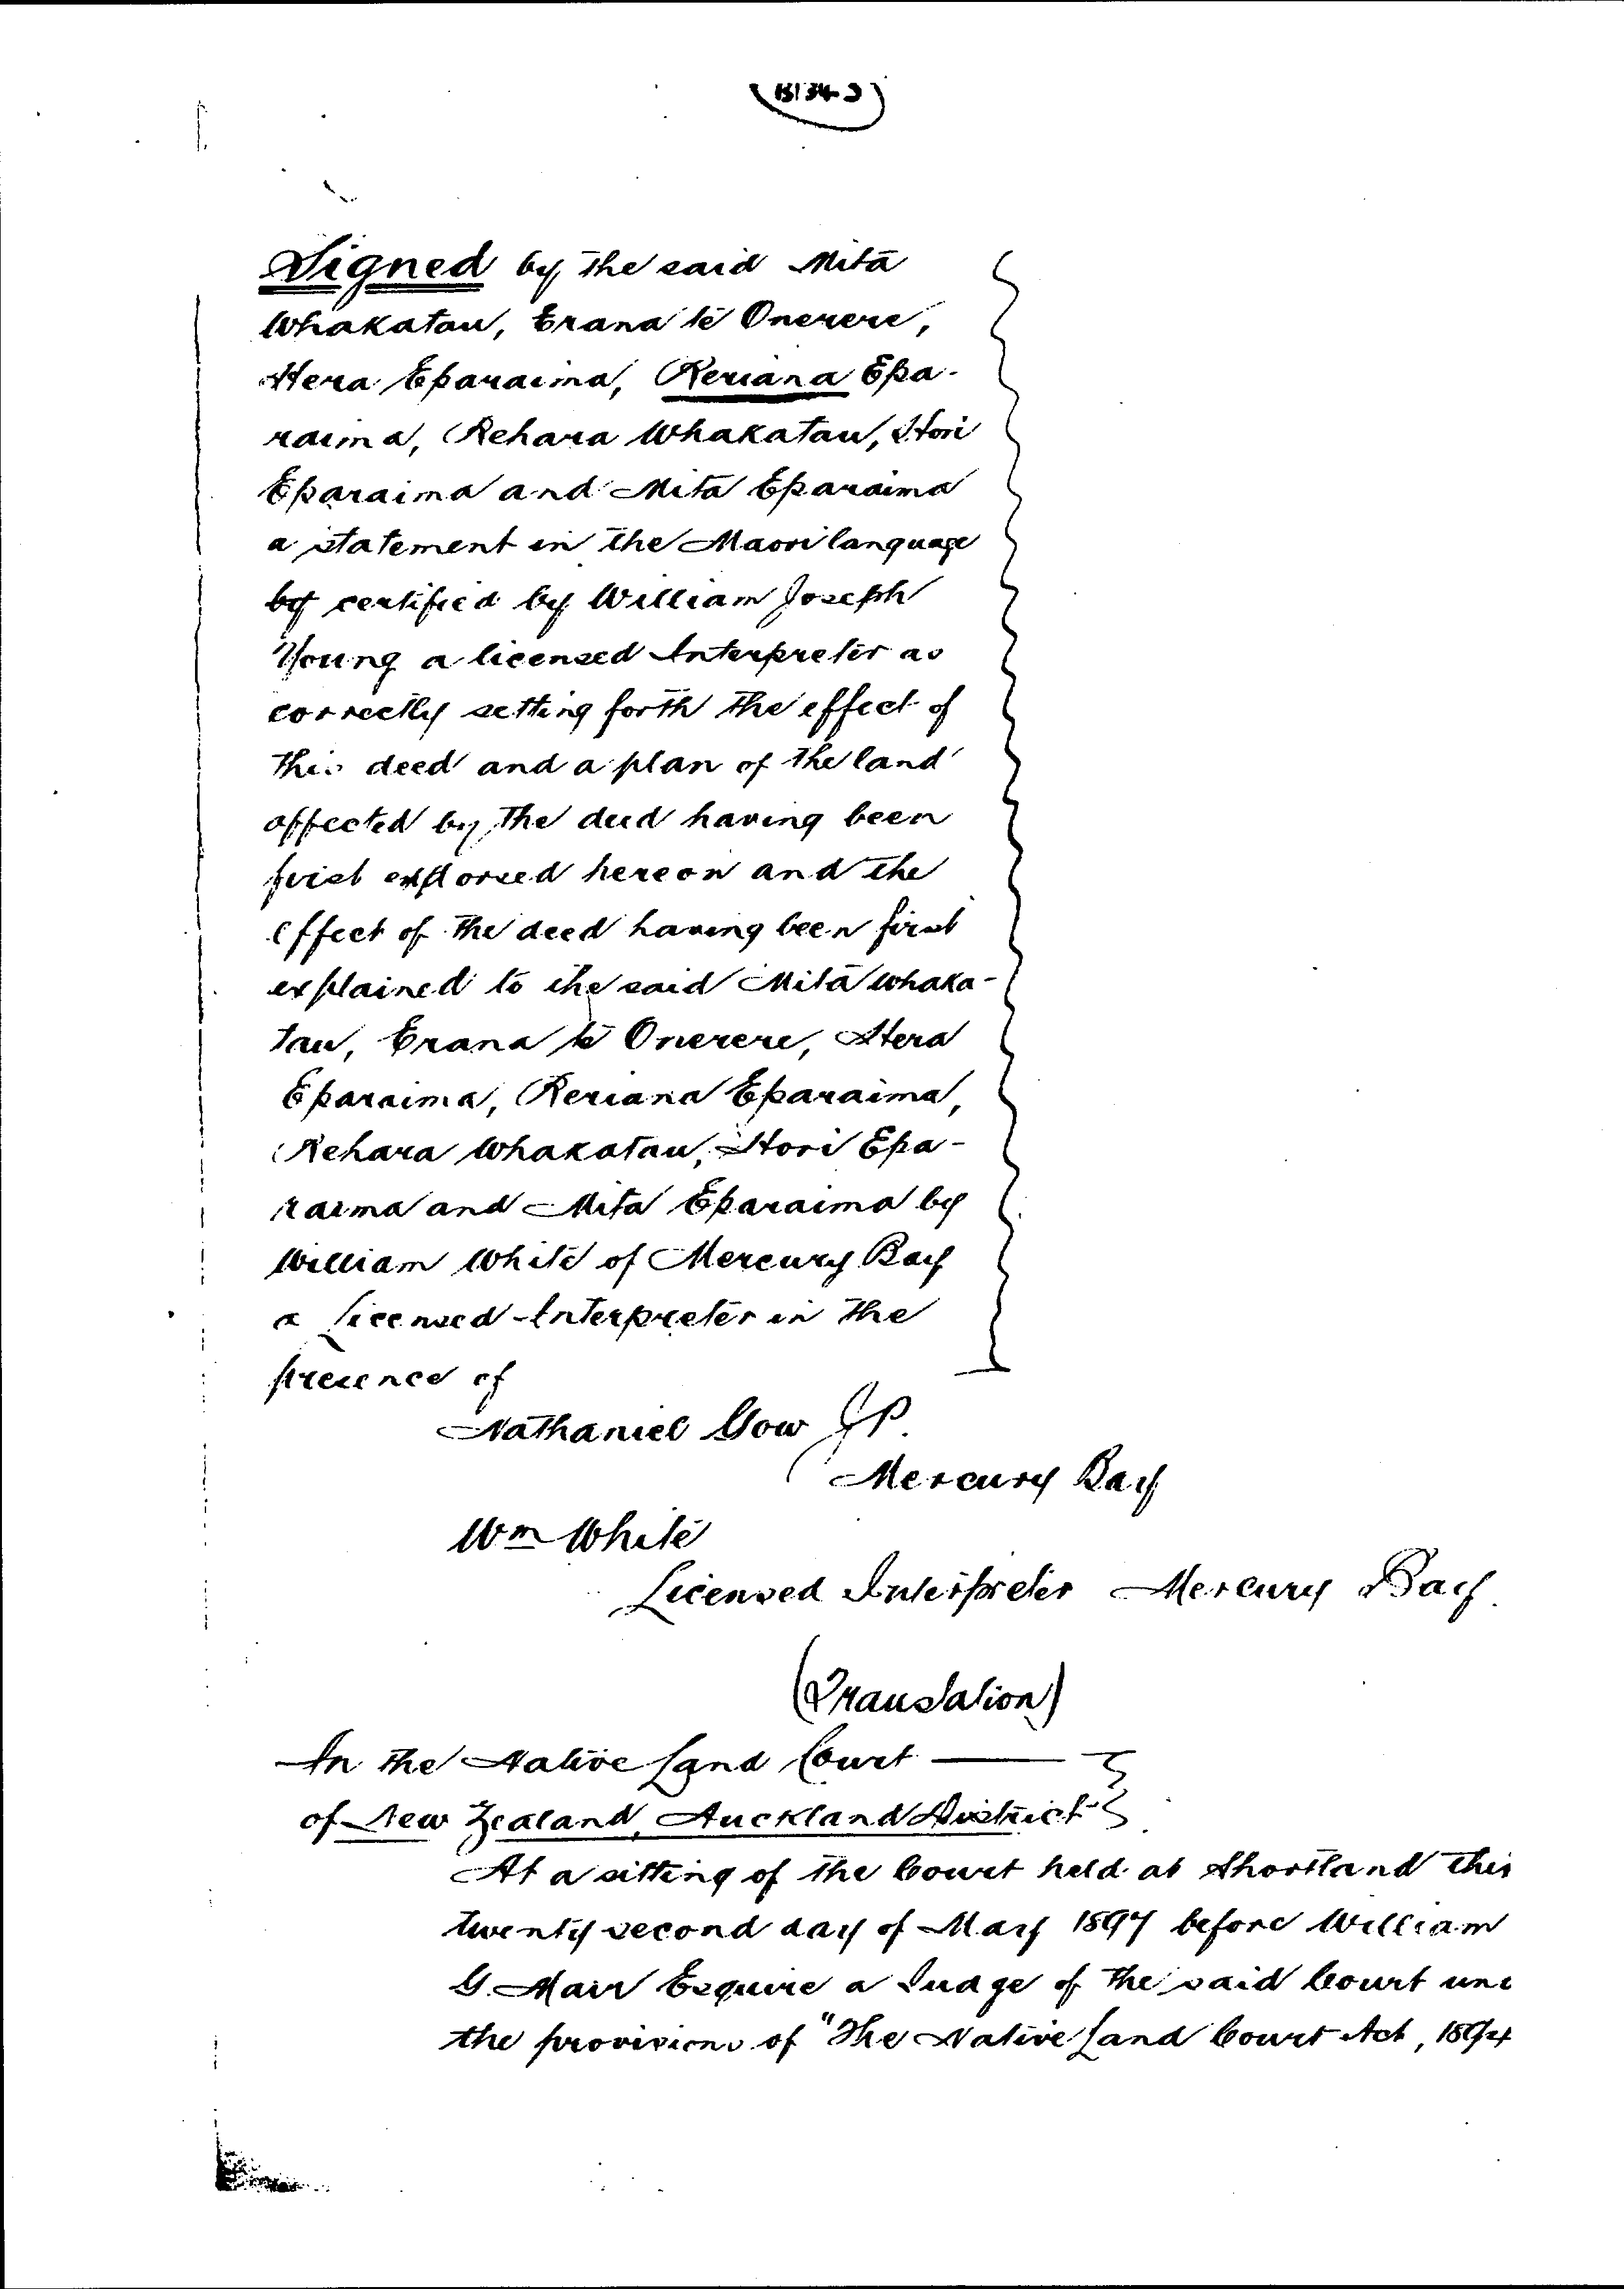 Signed by the said Mita
Whakatau, Erana te Onerere,
Hera Eparaima, Reriana Epa-
raima, Rehara Whakatau, Hori
Eparaima and Mita Eparaima
a statement in the Maori language
by certified by William Joseph
Young a licensed Interpreter as
correctly setting forth the effect of
this deed and a plan of the land
affected by the deed having been
first endorsed hereon and the
effect of the deed having been first
explained to the said Mita Whaka-
tau, Erana te Onerere, Hera
Eparaima, Reriana Eparaima,
Rehara Whakatau, Hori Epa-
raima and Mita Eparaima by
William White of Mercury Bay
a Licensed Interpreter in the
presence of
Nathaniel Gow J.P.
Mercury Bay
Wm White
Licensed Interpreter Mercury Bay.
(Translation)
In the Native Land Court
of New Zealand, Auckland District
At a sitting of the Court held at Shortland this
twenty second day of May 1897 before William
G. Mair Esquire a Judge of the said Court und
the provisions of "The Native Land Court Act, 1894